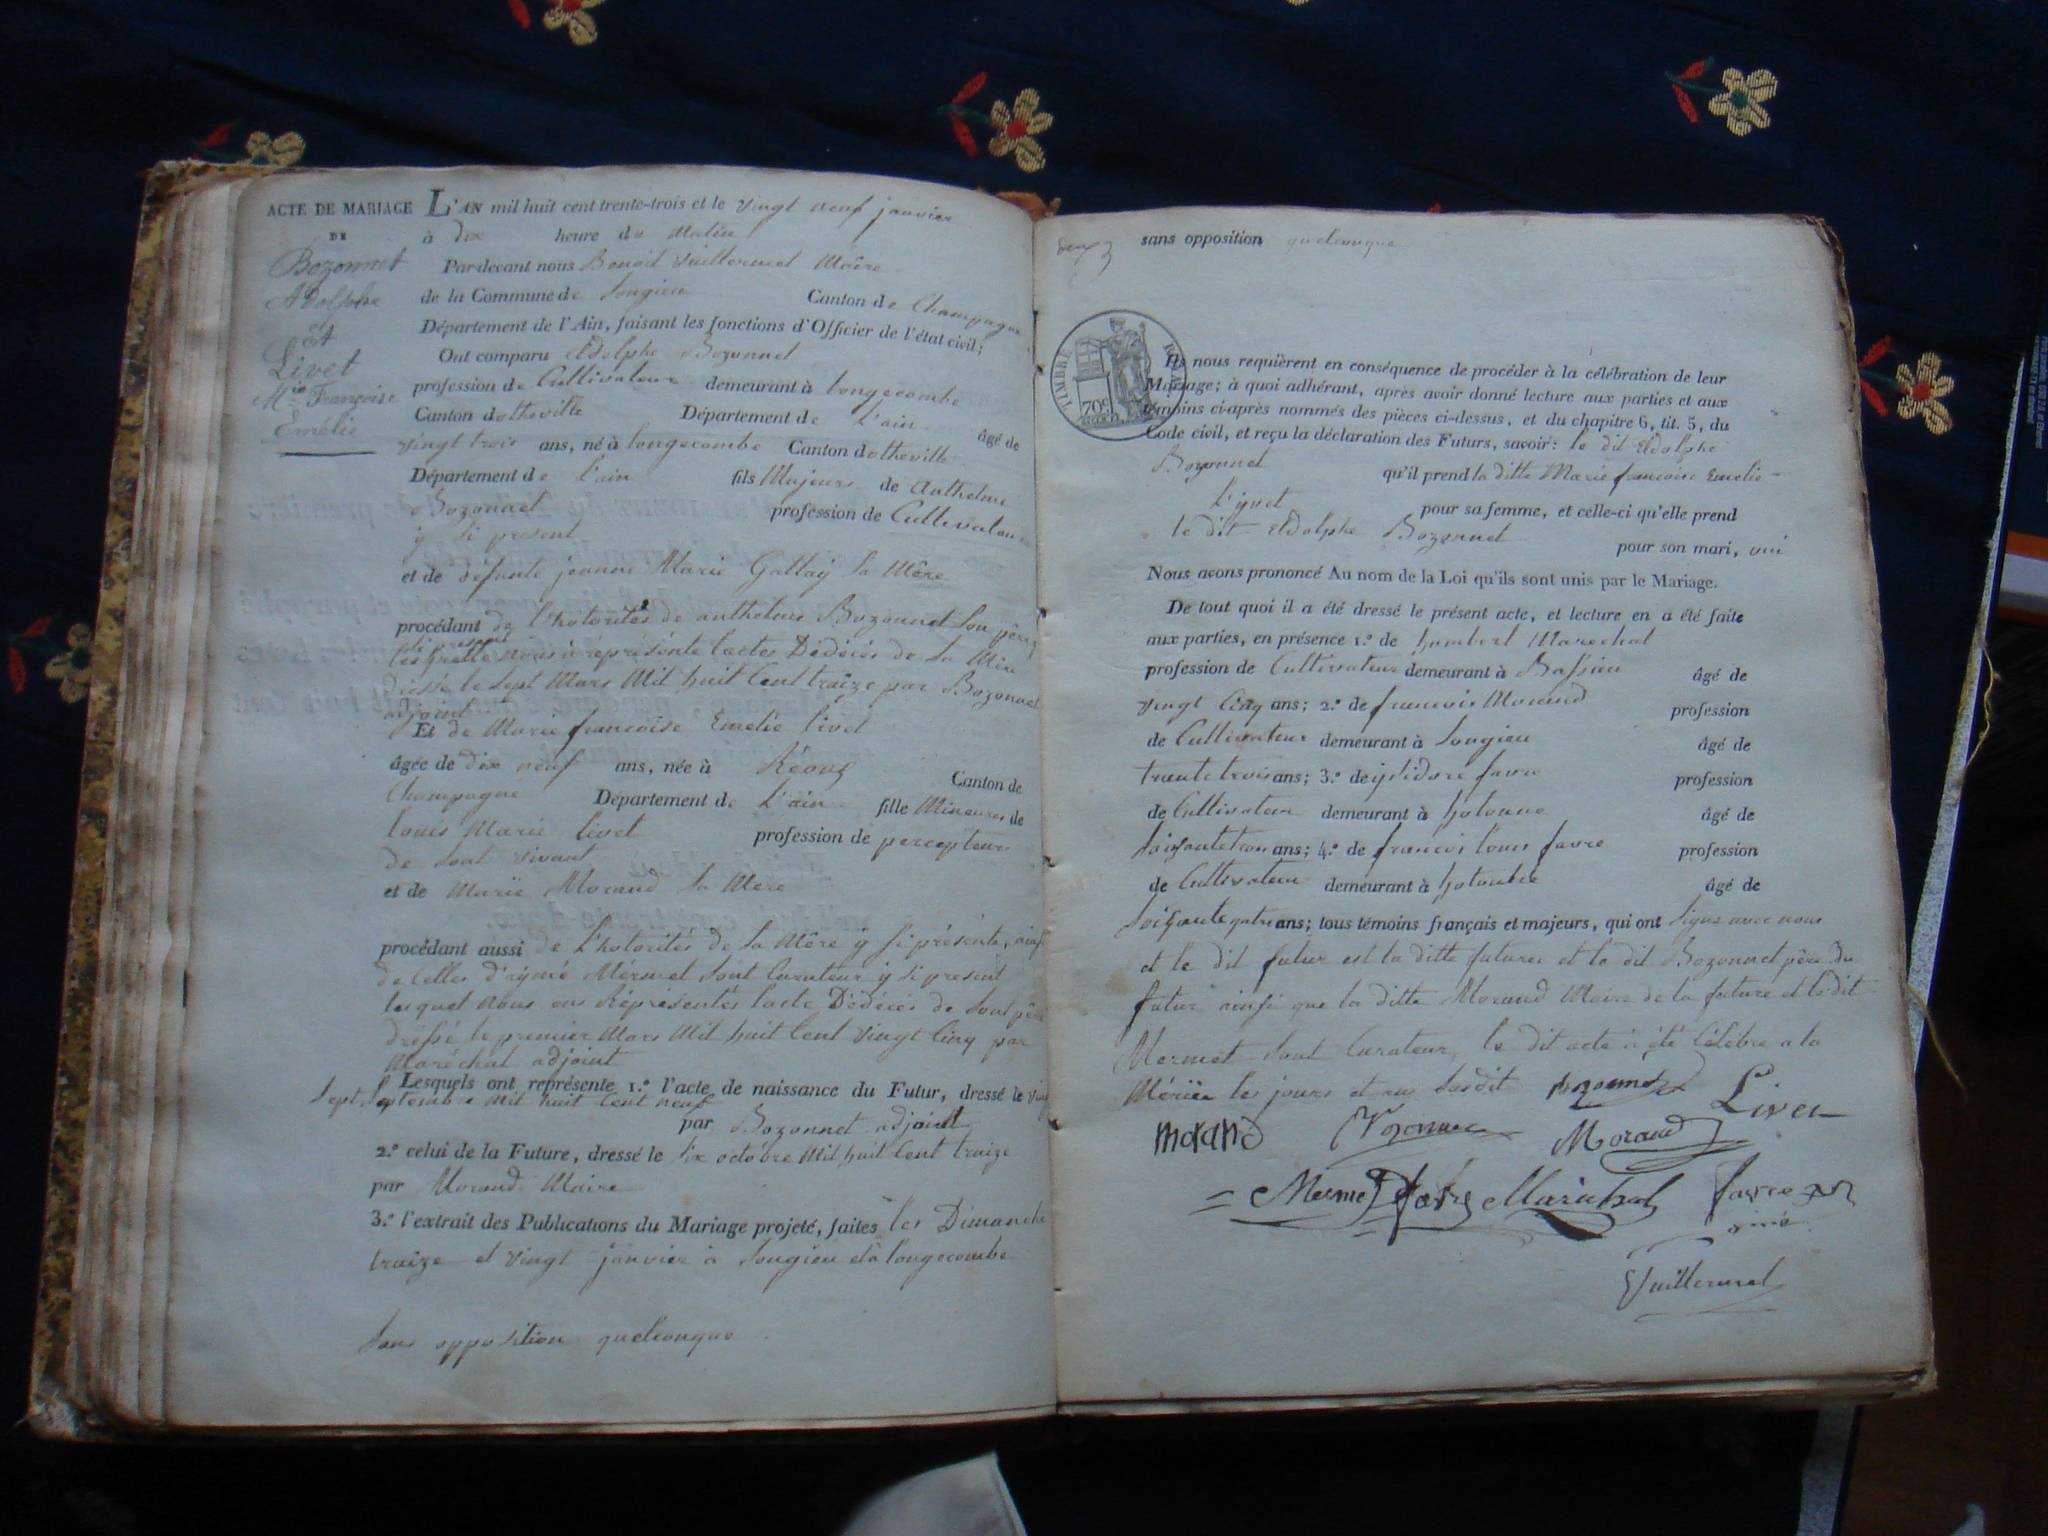 ACTE DE MARIAGE
DE
Bozonnet
Adolphe
Et
Livet
Mie Françoise
Emélie
L'AN mil huit cent trente-trois et le vingt neuf janvier
à dix heure du Matin
Par-devant nous Benoit Vuillermet Maire
de la Commune de Songieu Canton de Champagne
Département de l'Ain, faisant les fonctions d'Officier de l'état civil;
Ont comparu Adolphe Bozonnet
profession de Cultivateur demeurant à longecombe
Canton dotheville Département de L'ain âgé de
vingt trois ans, né à longecombe Canton dotheville
Département de L'ain fils Majeurs de Anthelme
Bozonnet profession de Cultivateur
y si présent
et de défunte jeanne Marie Gallay Sa Mêre
procédant de L'hotorités de anthelme Bozonnet Son père
nous à représenté lactes Dédécés de Sa Mère
dressé le sept Mars Mil huit Cent traize par Bozonnet
adjoint
Et de Marie françoise Emélie livet
âgée de dix neuf ans, née à Canton de
Champagne Département de L'ain fille Mineures de
louis Marie livet profession de percepteur
de Sont vivant
et de Marie Morand Sa Mère
procédant aussi de L'hotorités de Sa Mêre y si présente, ainsi
de Celles d'aymé Mermet Sont Curateur y si présent
lesquel nous ons Réprésentés lacte Dédécés de Sont père
dressé le premier Mars Mil huit Cent vingt Cinq par
Maréchal adjoint
Lesquels ont représenté 1.º l'acte de naissance du Futur, dressé le vingt
Sept Septembre Mil huit Cent neuf
par Bozonnet adjoint
2.º celui de la Future, dressé le Six octobre Mil huit Cent traize
par Morand Maire
3.º l'extrait des Publications du Mariage projeté, faites les Dimanche
traize et vingt janvier à Songieu et à longecombe
Sans opposition quelconque
sans opposition quelconque
TIMBRE R
70c
Ils nous requièrent en conséquence de procéder à la célébration de leur
Mariage; à quoi adhérant, après avoir donné lecture aux parties et aux
témoins ci-après nommés des pièces ci-dessus, et du chapitre 6, tit. 5, du
Code civil, et reçu la déclaration des Futurs, savoir: le dit Adolphe
Bozonnet qu'il prend la ditte Marie françoise Emelie
Lyvet pour sa femme, et celle-ci qu'elle prend
le dit Adolphe Bozonnet pour son mari, oui
Nous avons prononcé Au nom de la Loi qu'ils sont unis par le Mariage.
De tout quoi il a été dressé le présent acte, et lecture en a été faite
aux parties, en présence 1.º de humbert Marechal
profession de Cultivateur demeurant à Bassieu âgé de
vingt Cinq ans; 2.º de francois Morand profession
de Cultivateur demeurant à Songieu âgé de
trente trois ans; 3.º de ysidore favre profession
de Cultivateur demeurant à hotonne âgé de
Soisante trois ans; 4.º de francois louis favre profession
de Cultivateur demeurant à âgé de
Soisante quatre ans; tous témoins français et majeurs, qui ont Signe avec nous
et le dit futur est la ditte future et le dit Bozonnet père du
futur ainsi que la ditte Morand Maire de la future et le dit
Mermet Sont Curateur, le dit acte à été Célébre a la
Mériee les jours et an Susdit Bozonnet Livet
morand Bozonnet Morand
Mermet favre Marechal favre
Vuillermet